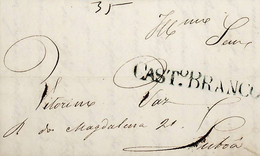 35
Illmo
Senr
CASTO. BRANCO
Vitorino Vaz
R. da Magdalena 21
Lisboa